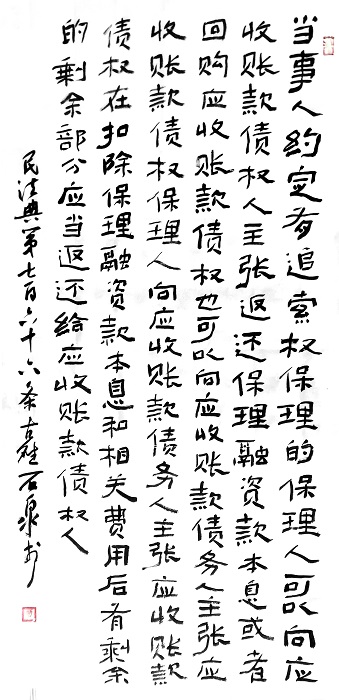 当事人约定有追索权保理的保理人可以向应
收账款债权人主张返还保理融资款本息或者
回购应收账款债权也可以向应收账款债务人主张应
收账款债权保理人向应收账款债务人主张应收账款
债权在扣除保理融资款本息和相关费用后有剩余
的剩余部分应当返还给应收账款债权人
民法典第七百六十六条石泉书